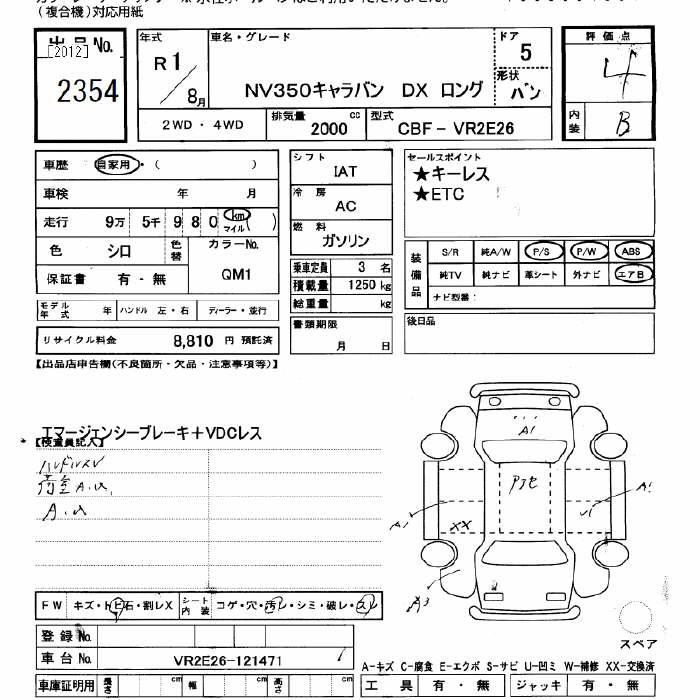 (複合機)対応用紙
出品No.
[2012]
2354
年式
R1
8月
車名・グレード
NV350キャラバン DX ロング
ドア
5
形状
バン
評価点
4
内装
B
2WD・4WD
排気量
2000
cc
型式
CBF-VR2E26
車歴
自家用・( )
車検
年 月
走行
9万 5千 9 8 0 km マイル ( )
色
シロ
色替
カラーNo.
QM1
保証書
有・無
モデル年式
年
ハンドル 左・右
ディーラー・並行
リサイクル料金
8,810 円 預託済
シフト
IAT
冷房
AC
燃料
ガソリン
乗車定員 3 名
積載量 1250 kg
総重量 kg
書類期限
月 日
セールスポイント
★キーレス
★ETC
装備品
S/R 純A/W P/S P/W ABS
純TV 純ナビ 革シート 外ナビ エアB
ナビ型番:
後日品
【出品店申告欄(不良箇所・欠品・注意事項等)】
エマージェンシーブレーキ+VDCレス
【検査員記入】
ハンドルスレ
荷室A.U.
A.U
A1
アクセ
A1
XX
U1
A1
A3
FW キズ・トビ石・割レX
シート内装 コゲ・穴・汚レ・シミ・破レ・スレ
登録No.
車台No.
VR2E26-121471
車庫証明用 長さ cm 幅 cm 高さ cm
スペア
A-キズ C-腐食 E-エクボ S-サビ U-凹ミ W-補修 XX-交換済
工具 有・無 ジャッキ 有・無